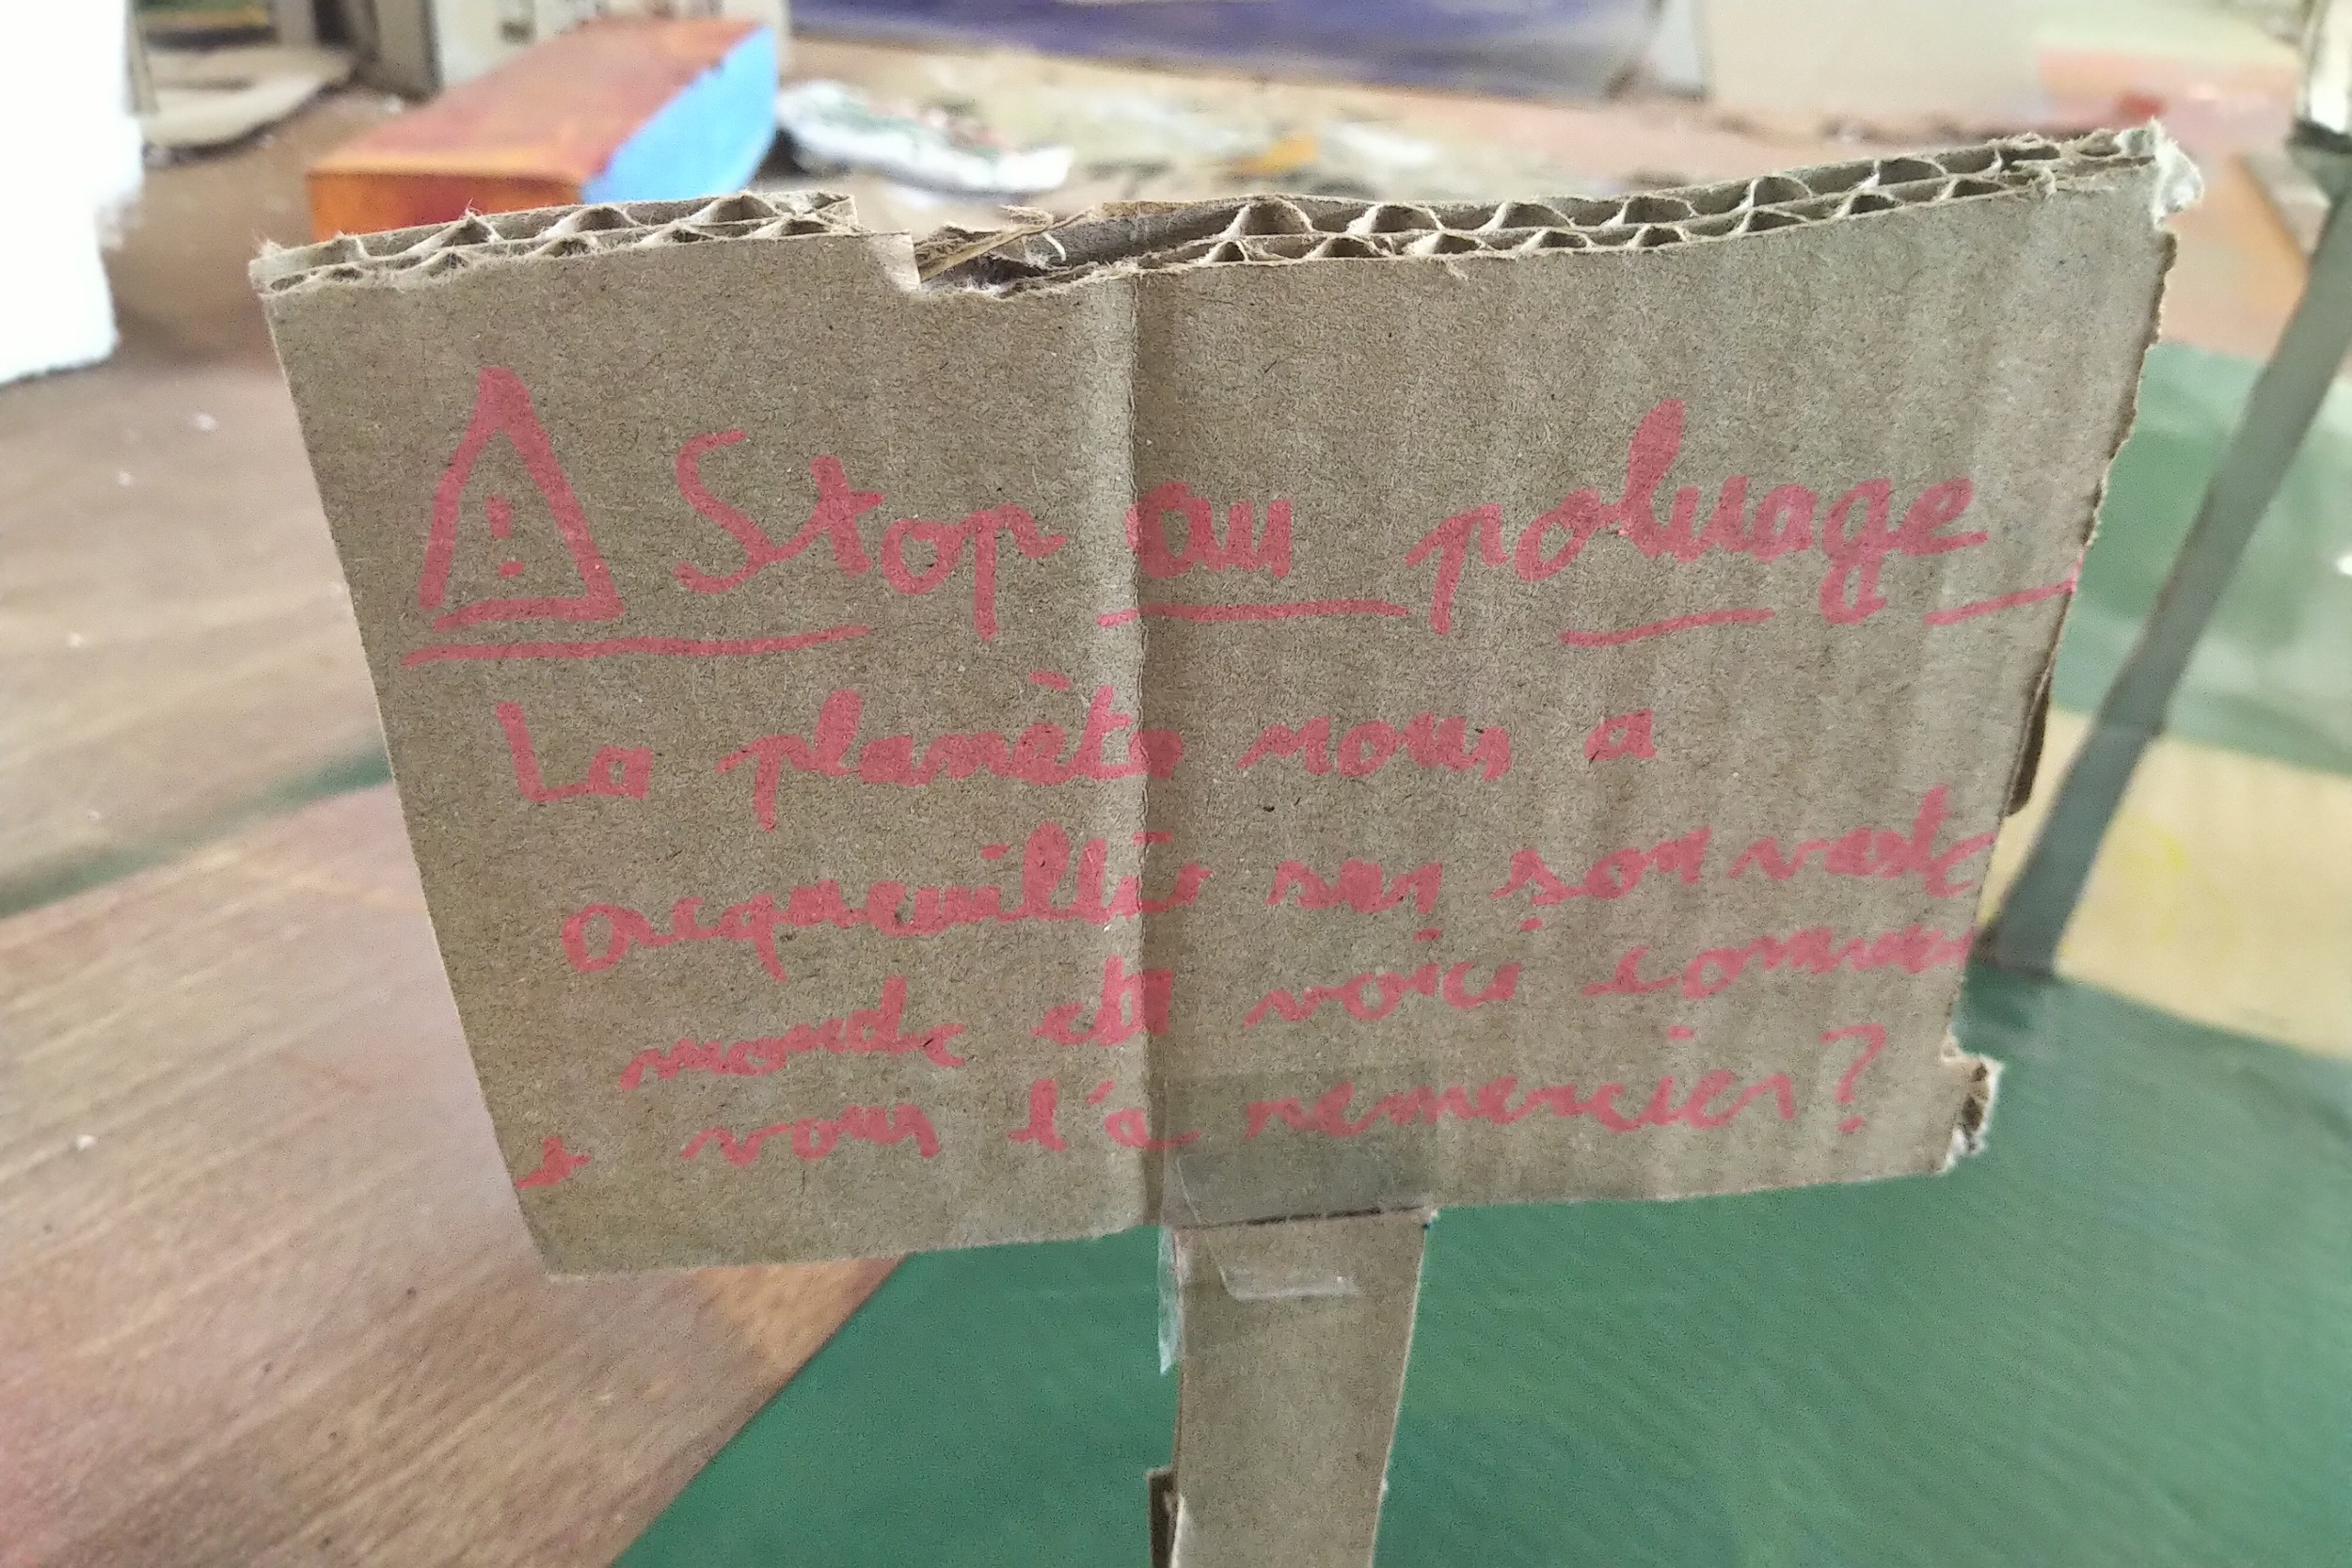 Stop au poluage
La planète nous a
acqueuillis ses son vaste
monde et voici commen
t vous l'a remercier?